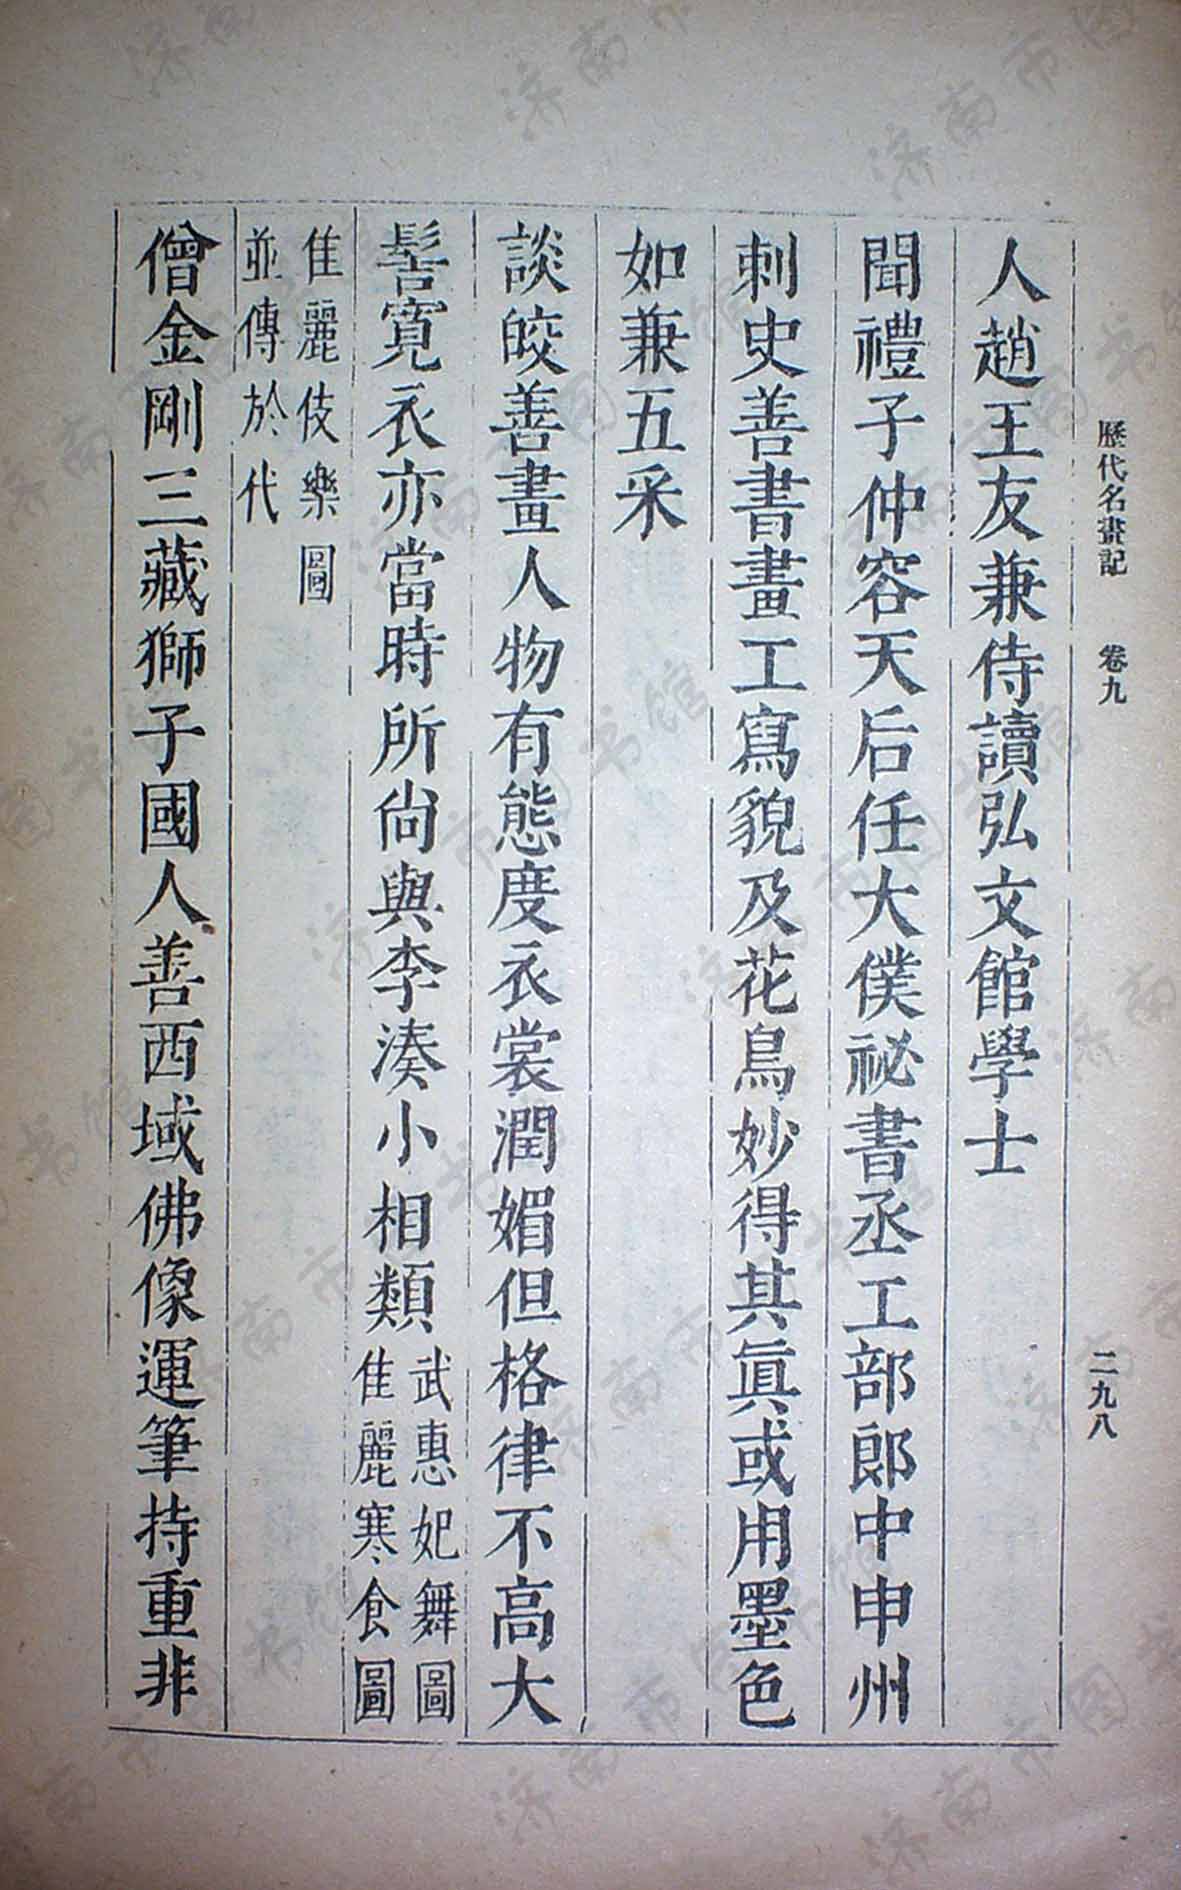 歷代名畫記 卷九 二九八
人趙王友兼侍讀弘文館學士
聞禮子仲容天后任大僕祕書丞工部郎中申州
刺史善書畫工寫貌及花鳥妙得其眞或用墨色
如兼五采
談皎善畫人物有態度衣裳潤媚但格律不高大
髻寬衣亦當時所尙與李湊小相類
武惠妃舞圖
佳麗寒食圖
佳麗伎樂圖
並傳於代
僧金剛三藏獅子國人善西域佛像運筆持重非